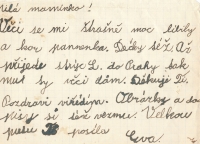 milá maminko!
Věci se mi strašně moc líbily
a bor panenka. Děcky si ž. Až
přijede strýc L. do Prahy tak
musí ty věci dám. Děkuji Ti.
Pozdravi všedým. Obrázky a do
pisy si též vezmu. Velkou
pusu posílá
Eva.